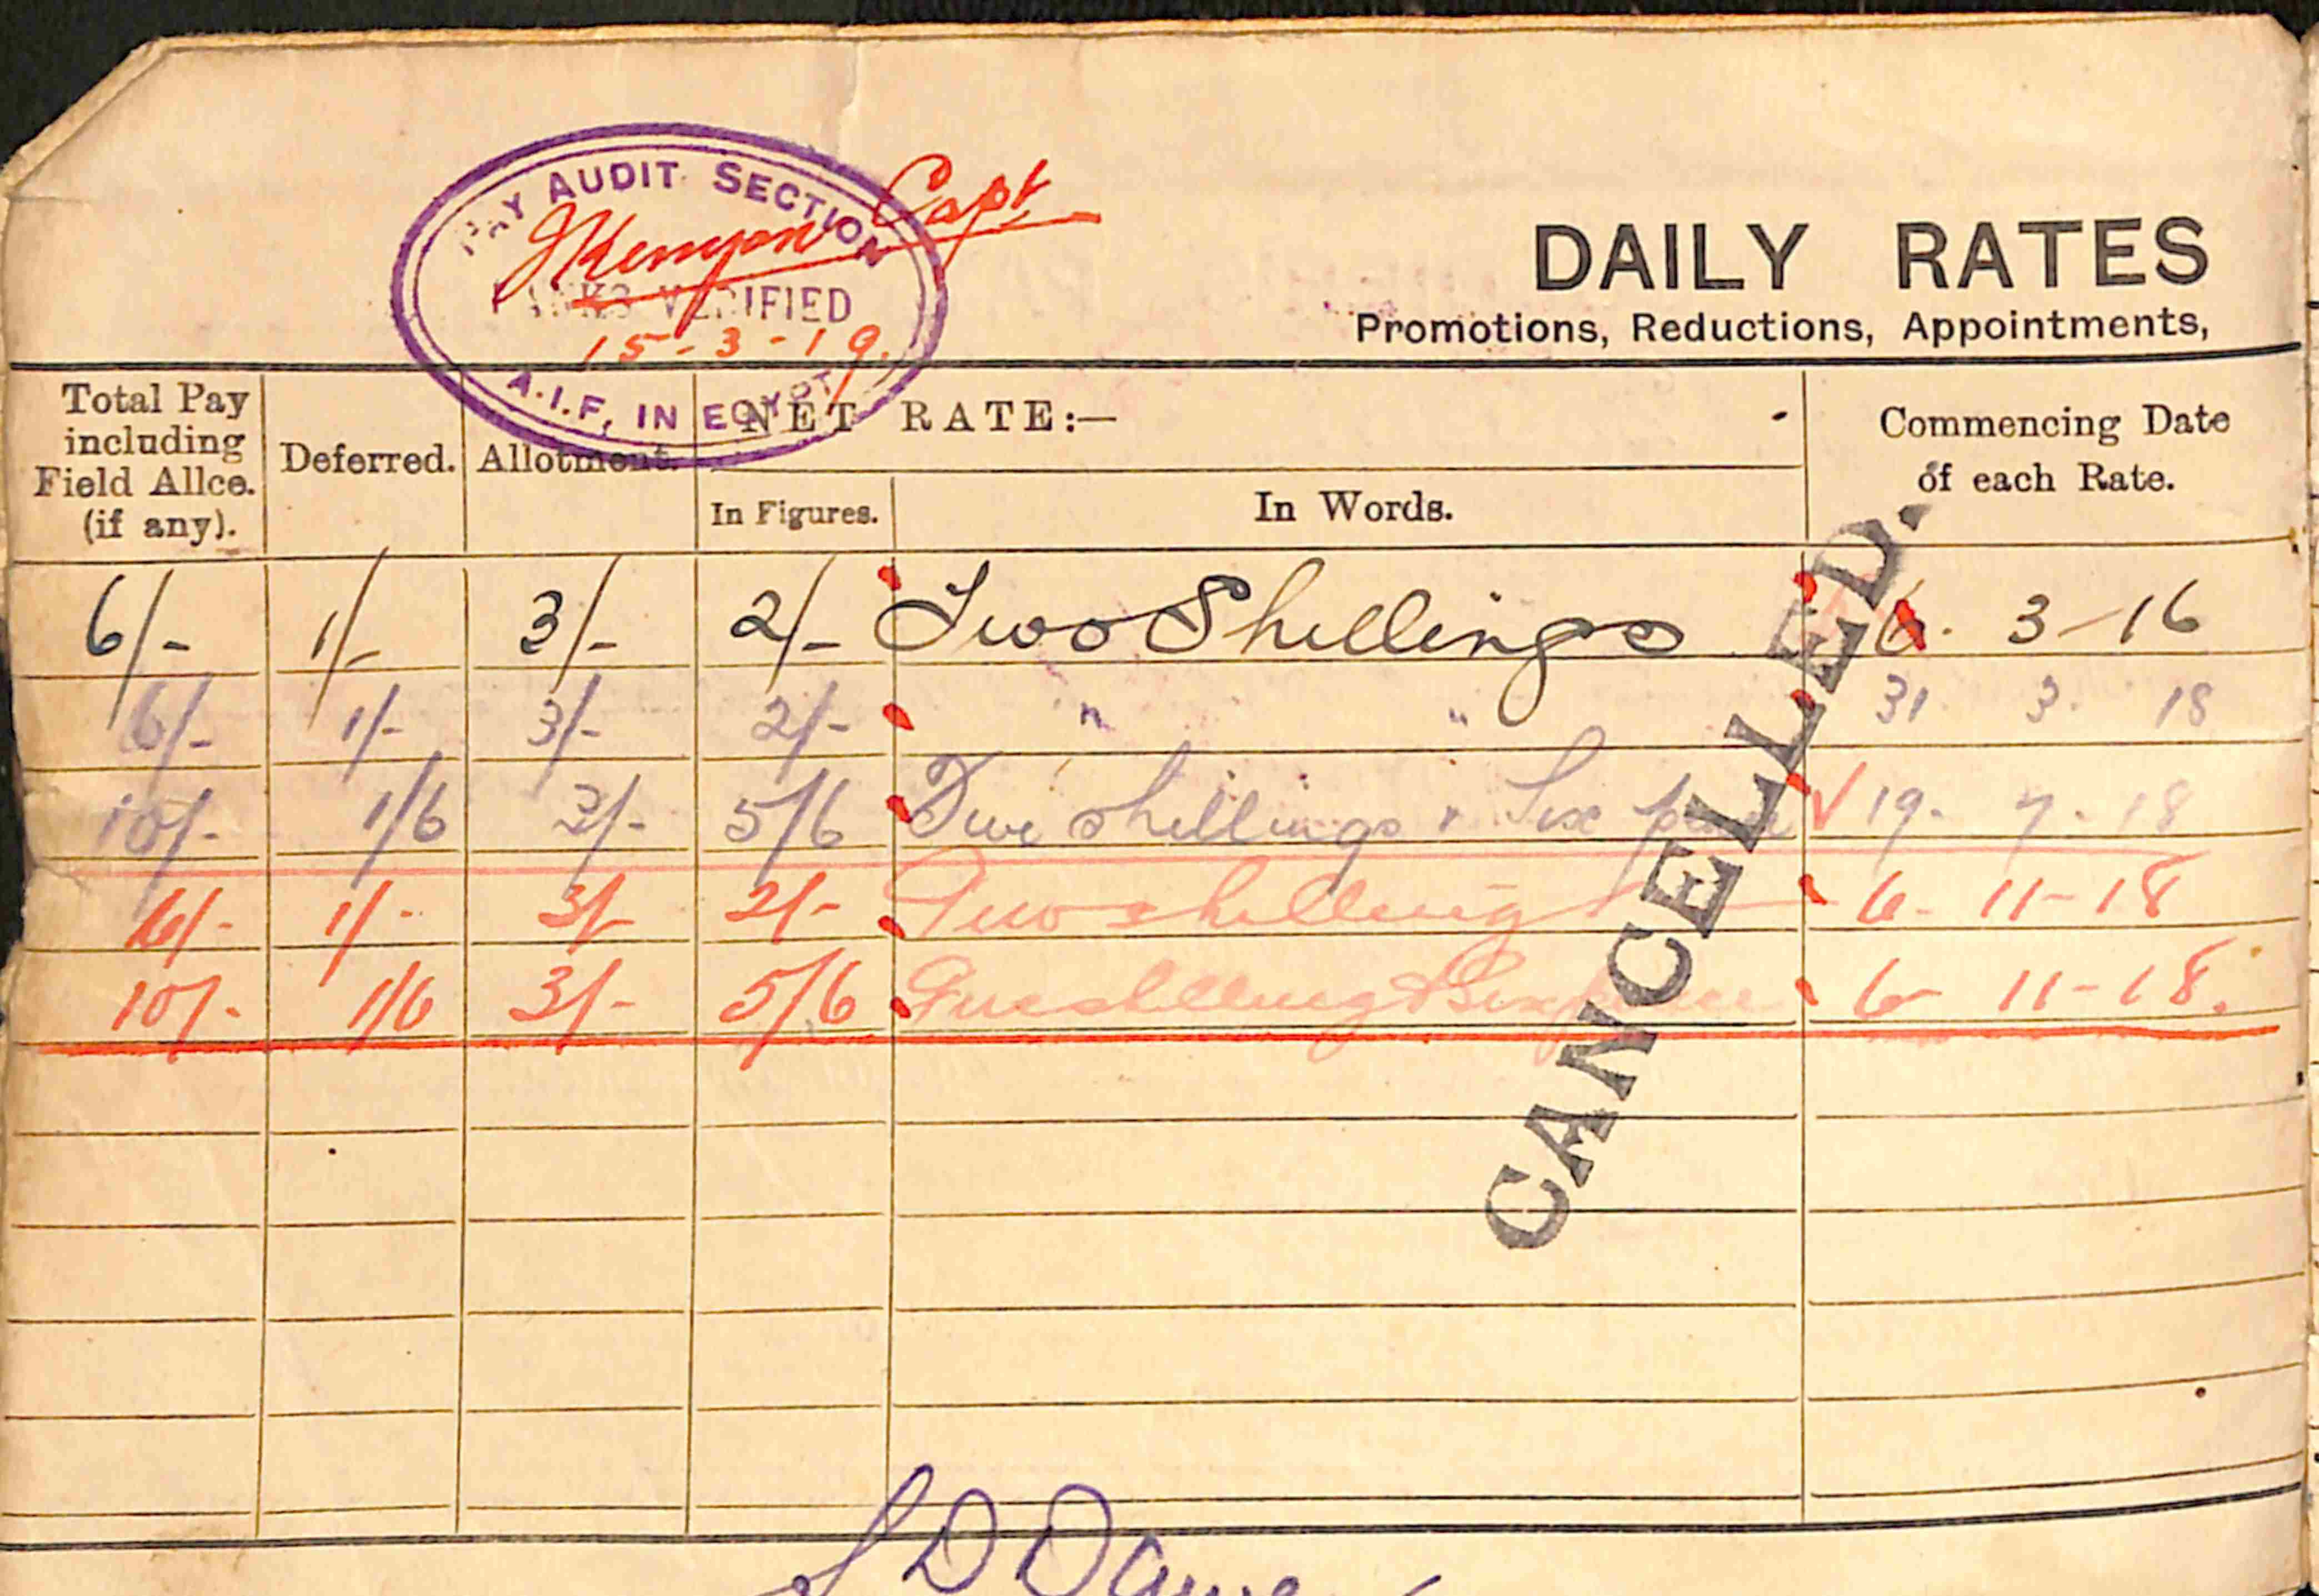 PAY AUDIT SECTION
JKenyon Capt
RANKS VERIFIED
15-3-19.
A.I.F. IN EGYPT
DAILY RATES
Promotions, Reductions, Appointments,
Total Pay including Field Allce. (if any).
Deferred.
Allotment.
NET RATE:—
In Figures.
In Words.
Commencing Date of each Rate.
6/- 1/- 3/- 2/- Two Shillings 6. 3-16
6/- 1/- 3/- 2/- " " 31. 3. 18
10/- 1/6 3/- 5/6 Five shillings & Six pence 19. 7. 18
6/- 1/- 3/- 2/- Two shilling 6- 11-18
10/- 1/6 3/- 5/6 Five shilling & Sixpence 6- 11-18.
CANCELLED.